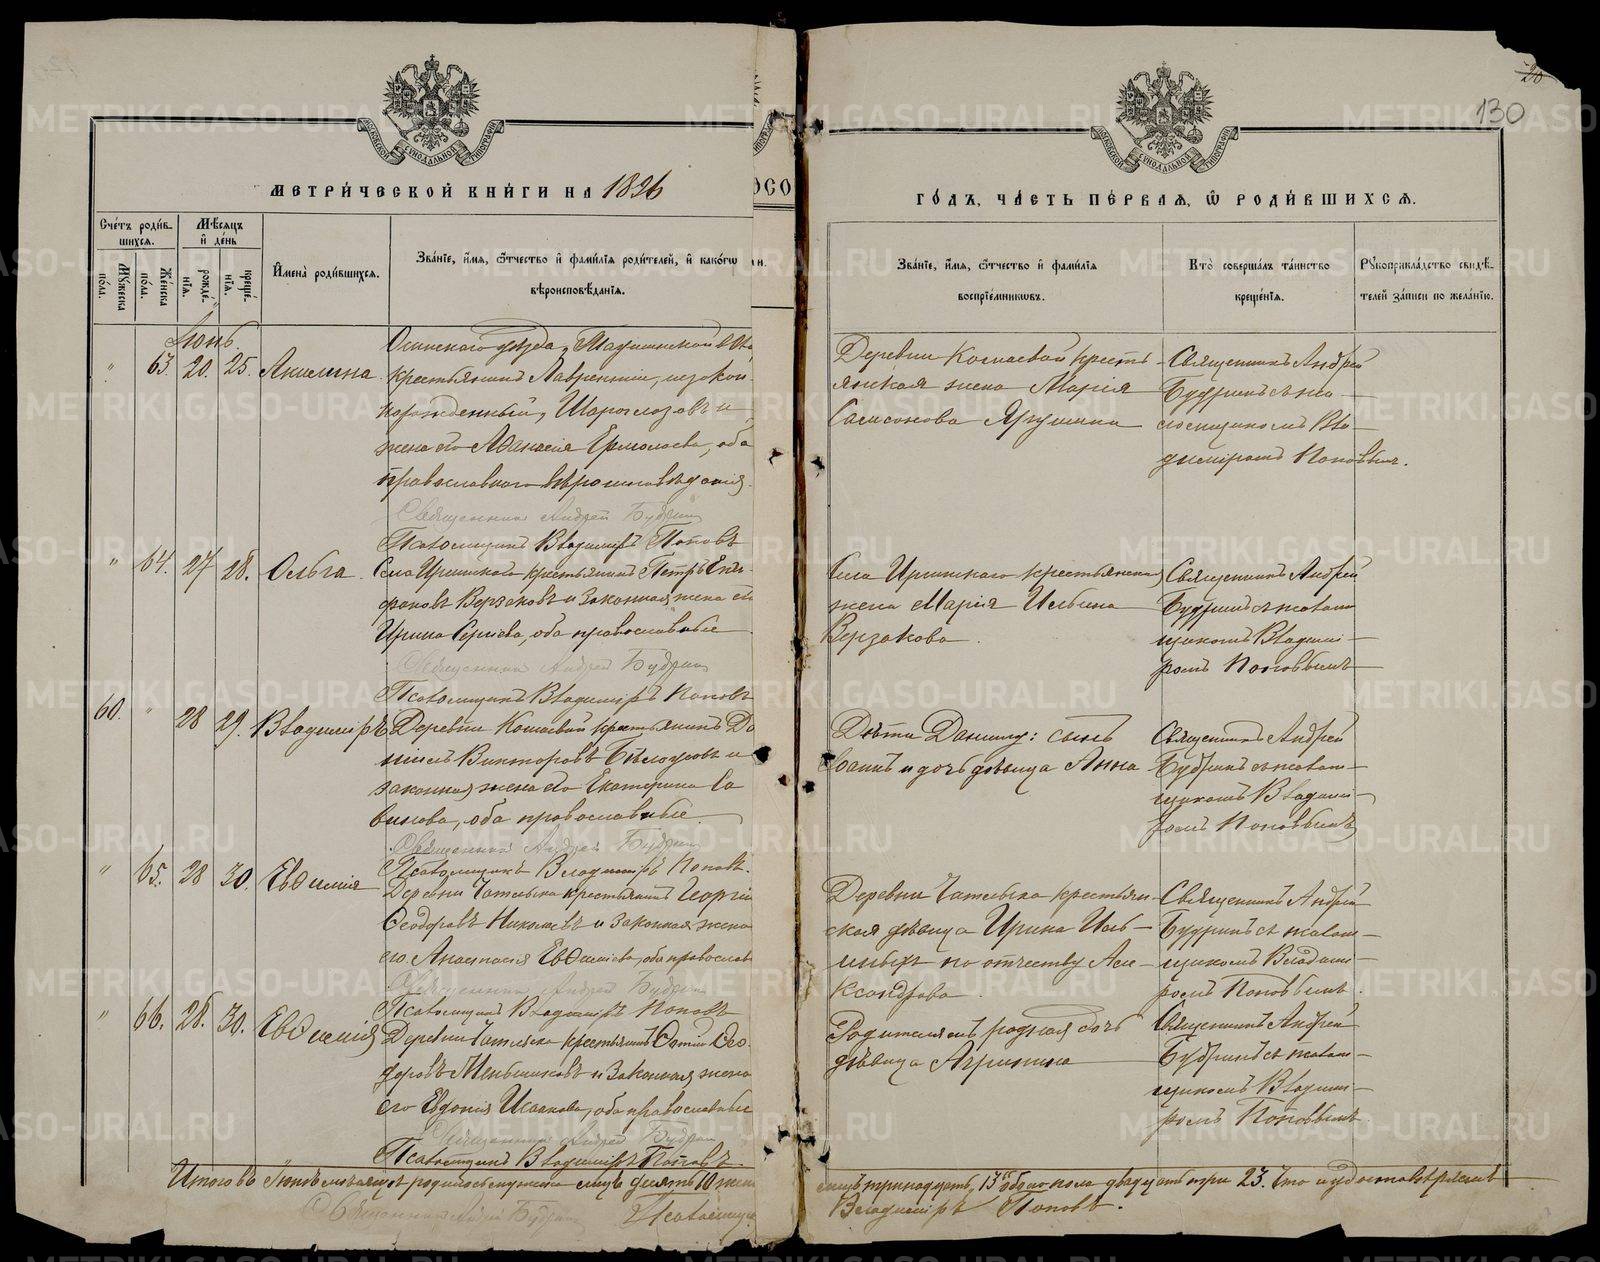 130
МЕТРИ́ЧЕСКОЙ КНИ́ГИ НА 1896
ГО́ДЪ, ЧА́СТЬ ПЕ́РВАЯ, Ѿ РОДИ́ВШИХСЯ.
Сче́тъ роди́вшихся.
Му́жеска по́ла.
Же́нска по́ла.
Мѣ́сяцъ и҆ де́нь
рожде́нія.
креще́нія.
И҆мена̀ роди́вшихся.
Зва́ніе, и҆́мя, ѻ҆́тчество и҆ фами́лія роди́телей, и҆ како́гѡ
вѣроисповѣ́данія.
Зва́ніе, и҆́мя, ѻ҆́тчество и҆ фами́лія
воспріе́мниковъ.
Кто̀ соверша́лъ та́инство
креще́нія.
Рꙋкоприкла́дство свидѣ́-
телей за́писи по жела́нію.
Іюнь.
" 63 20. 25. Акилина.
Осинскаго уѣзда,
крестьянинъ Лаврентій,
Шароглазовъ и
жена его Аѳанасія Ермолаева, оба
православнаго вѣроисповѣданія.
Священникъ Андрей Будринъ
Псаломщикъ Владиміръ Поповъ
Деревни Кошаевой кресть-
янская жена Марія
Самсонова Ярушина
Священникъ Андрей
Будринъ съ пса-
ломщикомъ Вла-
диміромъ Поповымъ.
" 64. 27 28. Ольга.
Села крестьянинъ Петръ Епи-
фановъ Верзаковъ и законная жена его
Ирина Сергіева, оба православные
Священникъ Андрей Будринъ
Псаломщикъ Владиміръ Поповъ
Села крестьянская
жена Марія Ильина
Верзакова.
Священникъ Андрей
Будринъ съ псалом-
щикомъ Владимі-
ромъ Поповымъ
60. " 28 29. Владиміръ
Деревни Кошаевой крестьянинъ Да-
ніилъ Викторовъ и
законная жена его Екатерина Са-
винова, оба православные.
Священникъ Андрей Будринъ
Псаломщикъ Владиміръ Поповъ.
Дѣти Даниила: сынъ
Іоаннъ и дочь дѣвица Анна
Священникъ Андрей
Будринъ съ псалом-
щикомъ Владимі-
ромъ Поповымъ
" 65. 28 30. Евѳимія
Деревни крестьянинъ Георгій
Ѳеодоровъ и законная жена
его Анастасія Евѳиміева, оба православ
Священникъ Андрей Будринъ
Псаломщикъ Владиміръ Поповъ
Деревни крестьян-
ская дѣвица Ирина
по отчеству Але-
ксандрова.
Священникъ Андрей
Будринъ съ псалом-
щикомъ Владимі-
ромъ Поповымъ.
" 66. 28. 30. Евѳимія
Деревни крестьянинъ Ѳотій Ѳео-
доровъ Меньшиковъ и законная жена
его Евдокія Исаакова, оба православные
Священникъ Андрей Будринъ
Псаломщикъ Владиміръ Поповъ
Родителямъ родная дочь
дѣвица Агрипина
Священникъ Андрей
Будринъ съ псалом-
щикомъ Владимі-
ромъ Поповымъ.
Итого въ Іюнѣ мѣсяцѣ родилось мужска лицъ десять 10 жен
тринадцать 13 обоего пола двадцать три 23. Что и удостовѣряемъ
Священникъ Андрей Будринъ Псаломщикъ
Владиміръ Поповъ.
METRIKI.GASO-URAL.RU